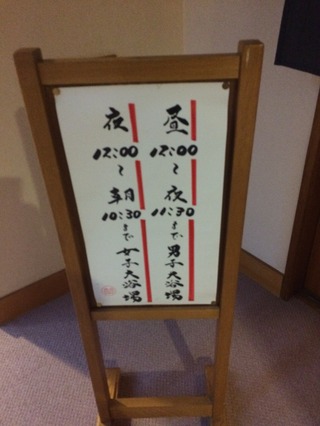 昼12:00〜夜11:30まで男子大浴場
夜12:00〜朝10:30まで女子大浴場